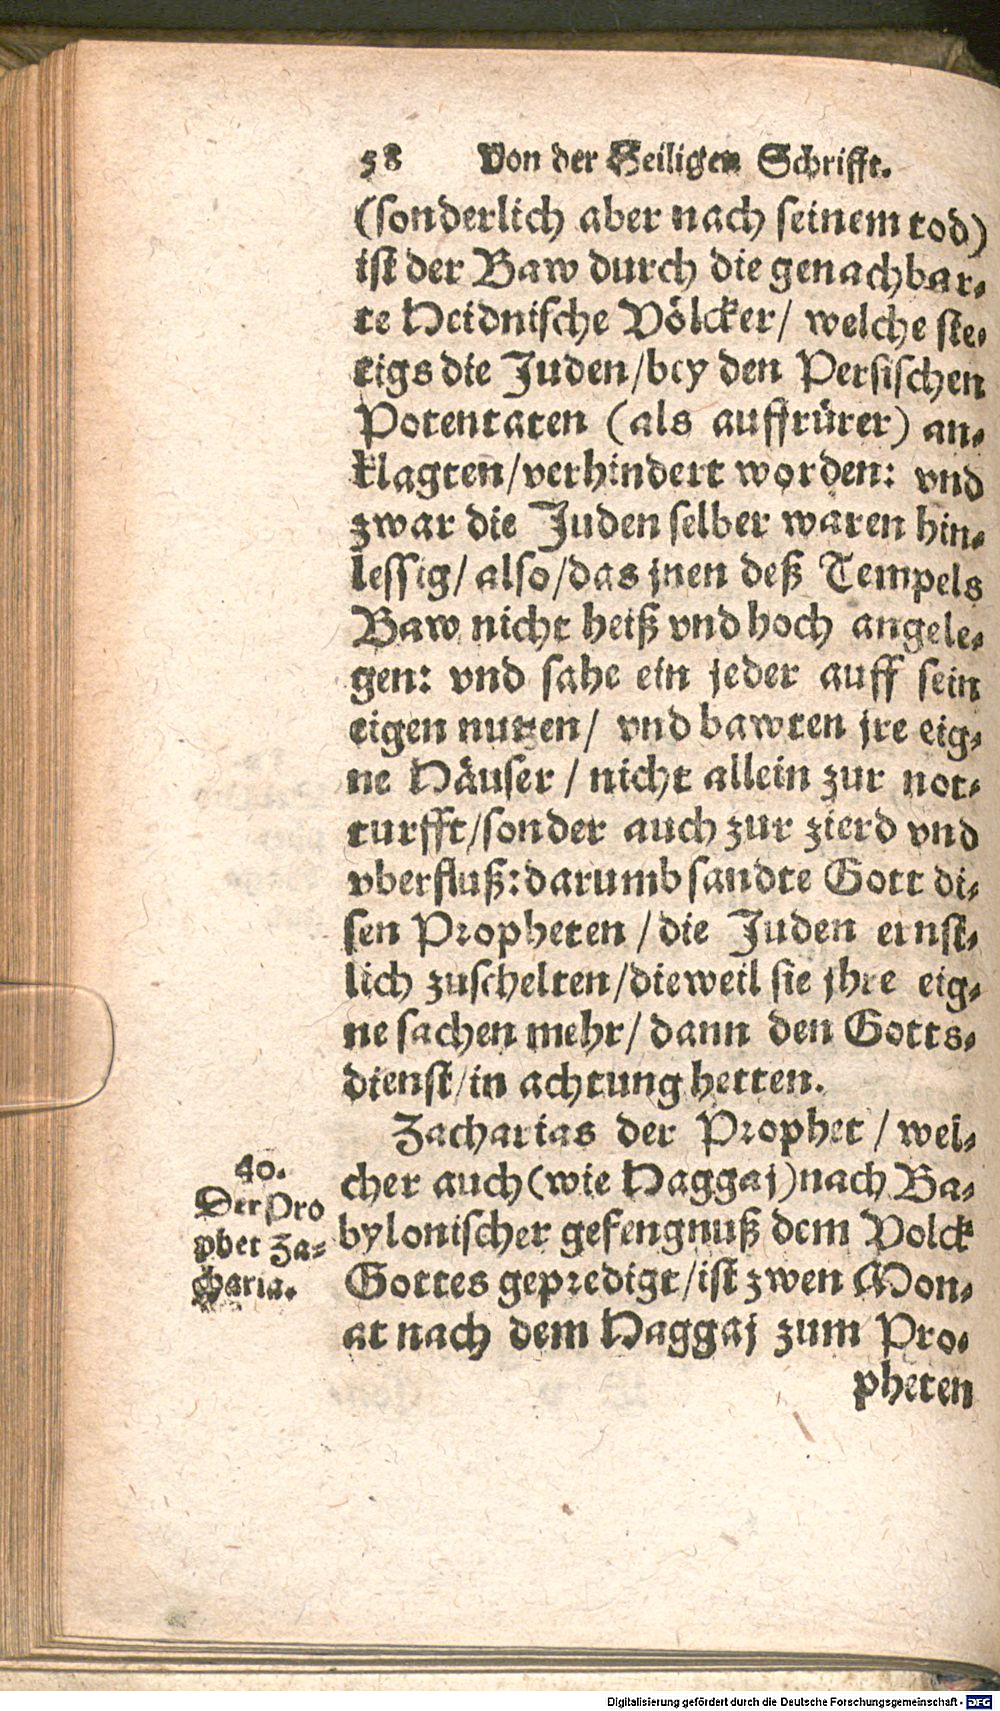 58 Von der Heiligen Schrifft.
(sonderlich aber nach seinem tod)
ist der Baw durch die genachbar-
te Heidnische Völcker/ welche ste-
tigs die Juden/bey den Persischen
Potentaten (als auffrürer) an-
klagten/verhindert worden: vnd
zwar die Juden selber waren hin-
lessig/ also/das jnen deß Tempels
Baw nicht heiß vnd hoch angele-
gen: vnd sahe ein jeder auff sein
eigen nutzen/ vnd bawten jre eig-
ne Häuser / nicht allein zur not-
turfft/sonder auch zur zierd vnd
vberfluß:darumb sandte Gott di-
sen Propheten /die Juden ernst-
lich zuschelten/dieweil sie jhre eig-
ne sachen mehr/ dann den Gotts-
dienst/in achtung hetten.
Zacharias der Prophet / wel-
cher auch (wie Haggaj) nach Ba-
bylonischer gefengnuß dem Volck
Gottes geprediget/ist zwen Mon-
at nach dem Haggaj zum Pro-
pheten
40.
Der Pro
phet Za-
charia.
Digitalisierung gefördert durch die Deutsche Forschungsgemeinschaft - DFG